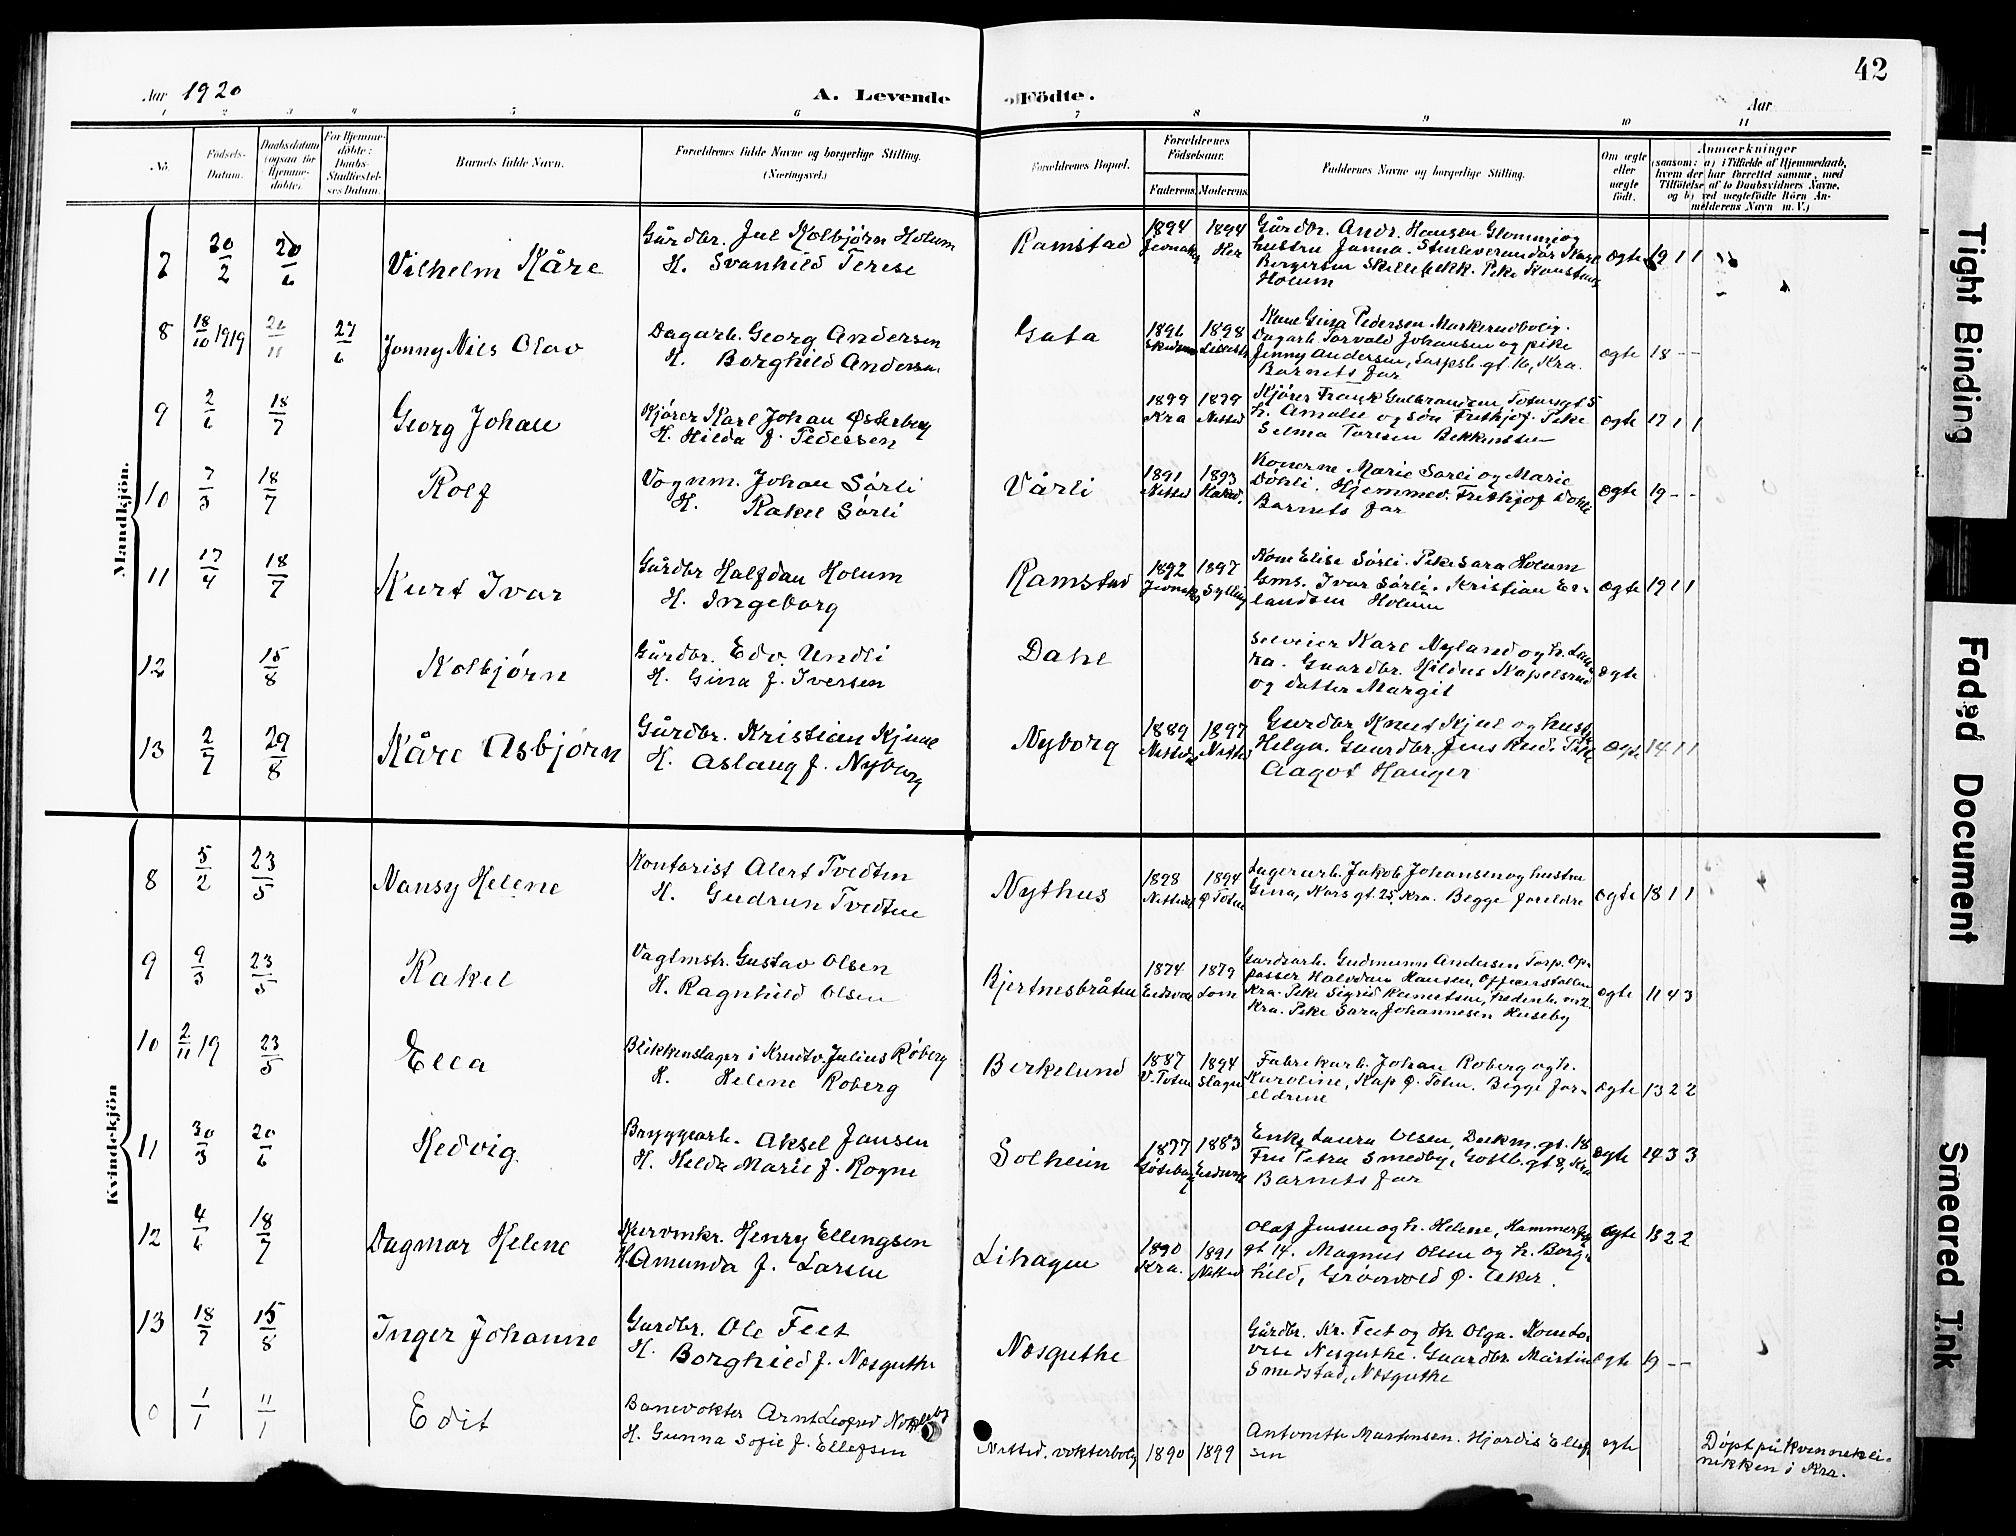 42
Aar 1920
A. Levende Födte.
Aar
1 2 3 4 5 6 7 8 9 10 11
No.
Födsels-
Datum.
Daabsdatum
(ogsaa for
Hjemme-
döbte).
For Hjemme-
döbte:
Daabs-
Stadfæstel-
ses Datum.
Barnets fulde Navn.
Forældrenes fulde Navne og borgerlige Stilling.
(Næringsvei.)
Forældrenes Bopæl.
Forældrenes
Födselsaar.
Faderens. Moderens.
Faddernes Navne og borgerlige Stilling.
Om ægte
eller
uægte
født.
Anmærkninger
(saasom: a) i Tilfælde af Hjemmedaab,
hvem der har forrettet samme, med
Tilföielse af to Daabsvidners Navne,
og b) ved uægtefödte Börn An-
melderens Navn m. V.)
Mandkjön.
7 20/2 20/6 Vilhelm Kåre
Gårdbr. Jul Kolbjørn Holum
H. Svanhild Terese
Ramstad
1894 1894
Jevnaker Her
Gårdbr. Andr. Hansen Glomme og
hustru Janna. Stenleverandør Kare
Bergersen Skillebekk. Pike Konstanse
Holum
ægte 19 1 1
8 18/10 1919 27/6 Jonny Nils Olav
Dagarb. Georg Andersen
H. Borghild Andersen
Gata
1896 1898
Kone Gina Pedersen Markerudbolig.
Dagarb. Torvald Johansen og pike
Jenny Andersen, Sarpsb. gt. 16, Kra.
Barnets far
ægte 18 - -
9 2/6 18/7 Georg Johan
Kjører Karl Johan Østerberg
H. Hilda f. Pedersen
1899 1899
Kra Nitted
Kjører Frank Gulbrandsen Totensgt 5
h. Amalie og søn Frithjof. Pike
Selma Toresen Bekkensten
ægte 17 1 1
10 7/3 18/7 Rolf
Vognm. Johan Sørli
H. Rakel Sørli
Vårli
1891 1893
Nitted Hakad.
Konerne Marie Sørli og Marie
Døhli. Hjemmev. Frithjof Døhli
Barnets far
ægte 19 - -
11 17/4 18/7 Kurt Ivar
Gårdbr Halfdan Holum
H. Ingeborg
Ramstad
1892 1897
Jevnaker Sylling
Kone Elise Sørli. Pike Sara Holum
Gms. Ivar Sørli. Kristian Er-
landsen Holum
ægte 19 1 1
12 15/8 Kolbjørn
Gårdbr. Edv. Undli
H. Gina f. Iversen
Dahl
Selveier Kare Nyland og h. Lau-
ra. Gaardbr. Hildus Kapelsrud
og datter Margit
ægte
13 2/7 29/8 Kåre Asbjørn
Gårdbr. Kristian Kjuul
H. Aslaug f. Nyborg
Nyborg
1889 1897
Nittedal Nitted
Gardbr Knut Kjul og hustru
Helga. Gaardbr. Jens Rud. Pike
Aagot Hauger
ægte 14 1 1
Kvindekjön
8 5/2 23/5 Nansy Helene
Kontorist Alert Tvedten
H. Gudrun Tvedten
Nythus
1898 1894
Nittedal Ø Toten
Lagerarb. Jakob Johansen og hustru
Gina, Nors gt. 25, Kra. Begge foreldre
ægte 18 1 1
9 9/3 23/5 Rakel
Vagtmstr. Gustav Olsen
H. Ragnhild Olsen
Bjertnesbråten
1874 1879
Eidsvold Lom
Gardsarb. Gudmunn Andersen Torp. Op-
passer Halvdan Hansen, Officerstallen
Kra. Pike Sigrid Kanutsen, Fredenb. vei 2
Kra. Pike Sara Johannesen Huseby
ægte 11 4 3
10 2/11 19 23/5 Ella
Blikkenslager i Krudtv. Julius Røberg
H. Helene Roberg
Berkelund
1887 1894
V. Toten Slagn
Fabrikarb. Johan Roberg og h.
Karoline, Kap Ø. Toten. Begge for-
eldrene
ægte 13 2 2
11 30/3 20/6 Hedvig
Bryggearb. Aksel Jansen
H. Hilda Marie f. Rogne
Solheim
1877 1883
Gøteborg Eidsvold
Enke Laura Olsen, Dækm. gt. 18
Fru Petra Smedby, Gottb. gt 8, Kra
Barnets far
ægte 14 3 3
12 4/6 18/7 Dagmar Helene
Kurvmkr. Henry Ellingsen
H. Amunda f. Larsen
Lihagen
1890 1891
Kra. Nitted
Olaf Jensen og h. Helene, Hammerfest
gt 14. Magnus Olsen og h. Borg-
hild, Grøovold Ø. Aker.
ægte 13 2 2
13 18/7 15/8 Inger Johanne
Gardbr. Ole Feet
H. Borghild f. Nosguthe
Nosguthe
Gårdbr. Kr. Feet og dtr. Olga. Kone Lo-
vise Nesguthe. Gaardbr. Martin
Smedstad, Nosguthe
ægte 19 - -
0 1/1 11/1 Edit
Banevokter Arnt Leofred Nordleby
H. Gunna Sofie f. Ellefsen
Nitted. vokterbolig 1890 1899
Antonette Martensen. Hjørdis Ellef-
sen
ægte
Døpt på kvinnekli-
nikken i Kra.
Tight Binding
Faded Document
Smeared Ink